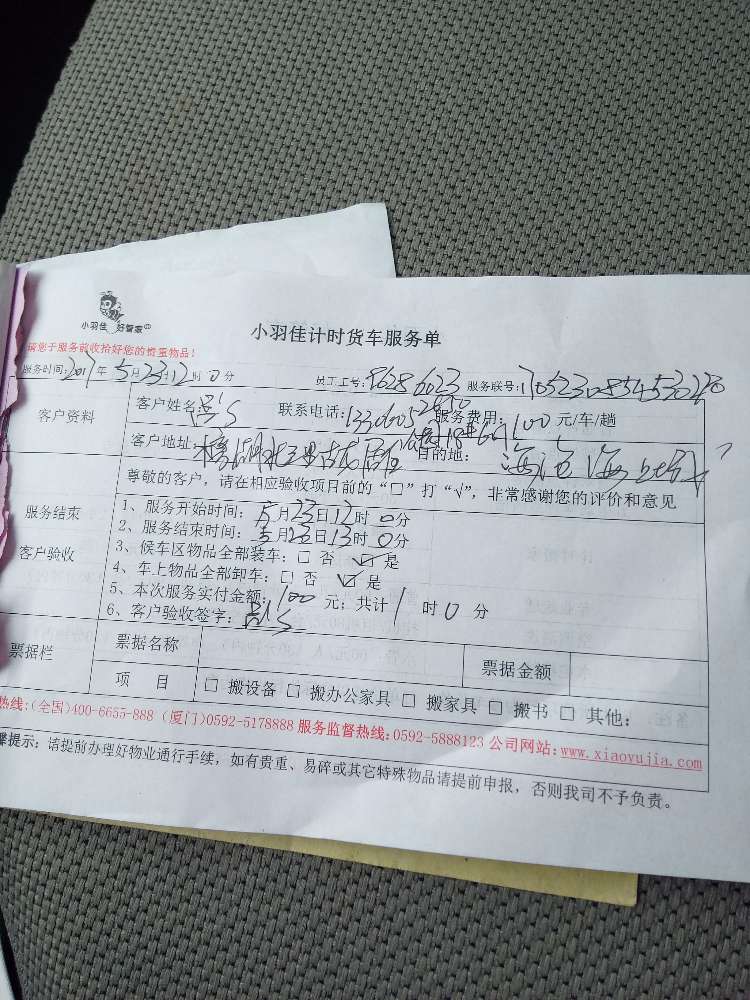 小羽佳 好管家
小羽佳计时货车服务单
请您于服务前收拾好您的贵重物品!
服务时间:2017年5月23日12时0分 员工工号: 服务联号:
客户资料
客户姓名: 联系电话: 服务费用:100元/车/趟
客户地址: 目的地:
尊敬的客户,请在相应验收项目前的“□”打“√”,非常感谢您的评价和意见
服务结束
客户验收
1、服务开始时间:5月23日12时0分
2、服务结束时间:5月23日13时0分
3、候车区物品全部装车:□ 否 ☑ 是
4、车上物品全部卸车:□ 否 ☑ 是
5、本次服务实付金额:100元;共计1时0分
6、客户验收签字:
票据栏
票据名称 票据金额
项 目 □ 搬设备 □ 搬办公家具 □ 搬家具 □ 搬书 □ 其他:
热线:(全国)400-6655-888 (厦门)0592-5178888 服务监督热线:0592-5888123 公司网站:www.xiaoyujia.com
提示:请提前办理好物业通行手续,如有贵重、易碎或其它特殊物品请提前申报,否则我司不予负责。